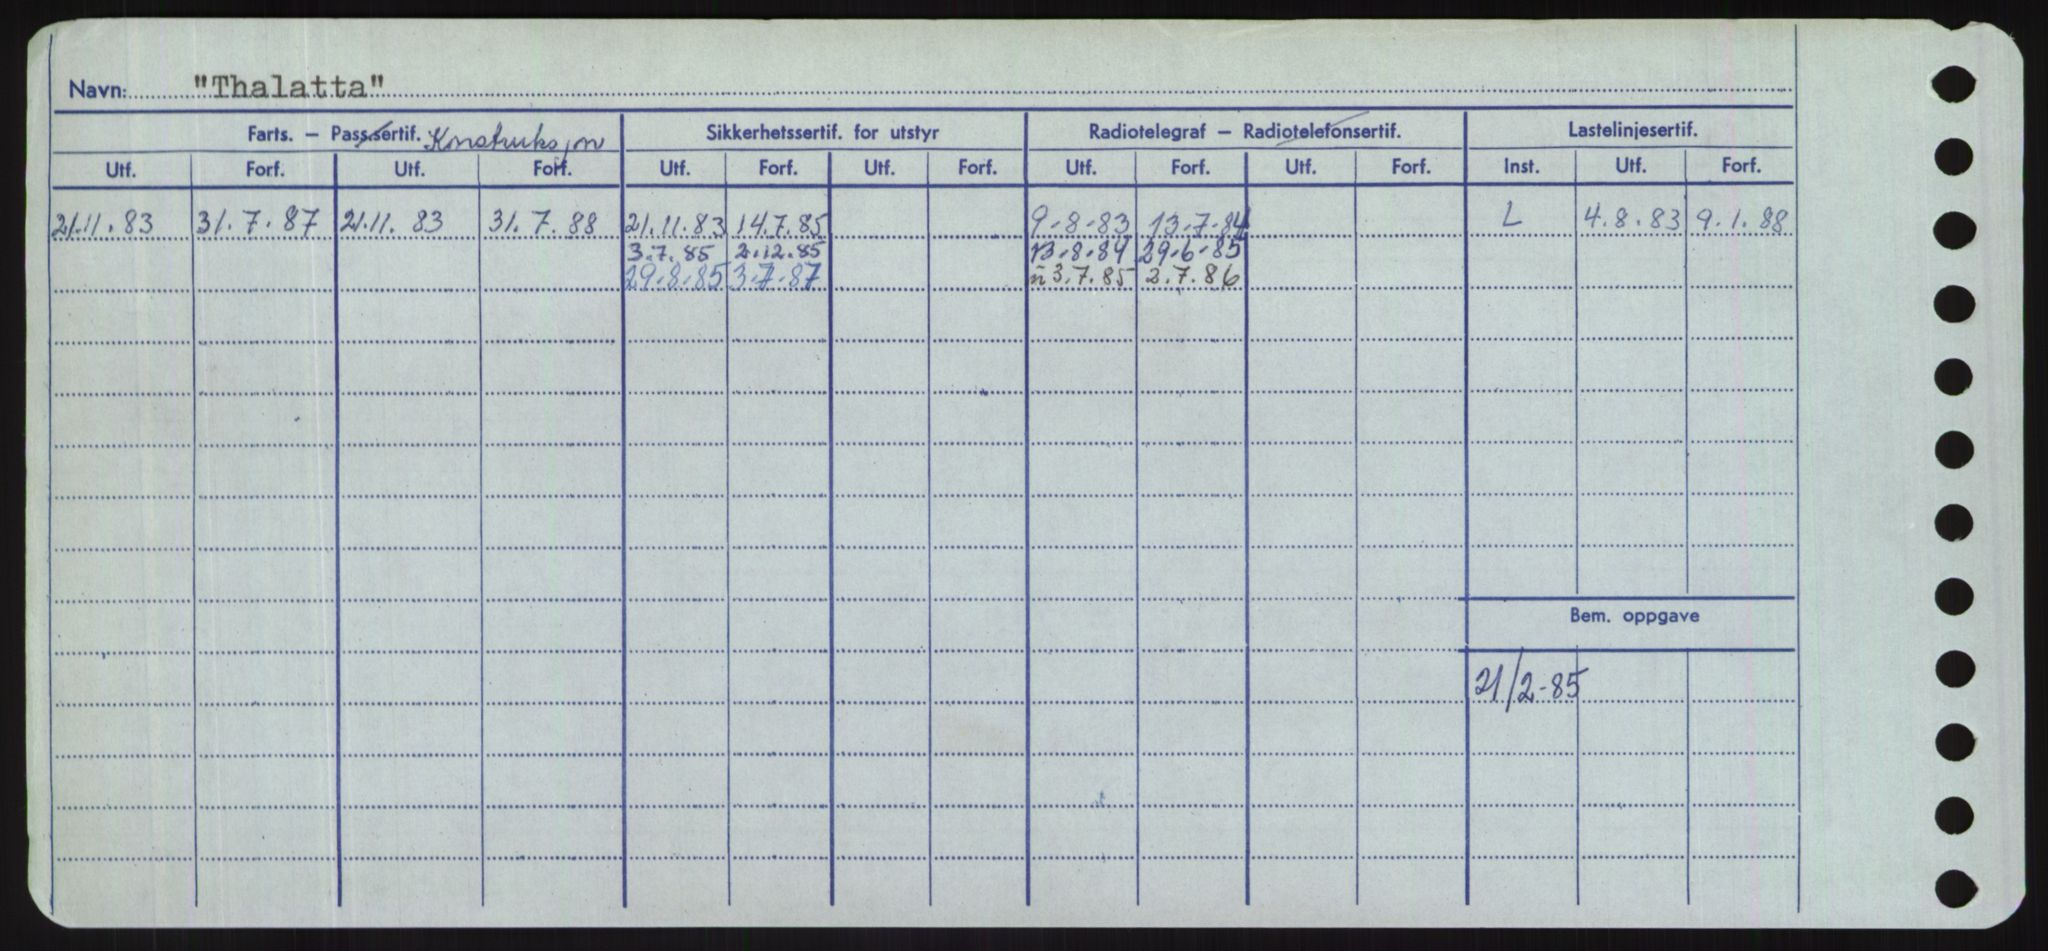 Navn: "Thalatta"
Farts. – Passsertif. Konstruksjon Sikkerhetssertif. for utstyr Radiotelegraf – Radiotelefonsertif. Lastelinjesertif.
Utf. Forf. Utf. Forf. Utf. Forf. Utf. Forf. Utf. Forf. Utf. Forf. Inst. Utf. Forf.
21.11.83 31.7.87 21.11.83 31.7.88 21.11.83 14.7.85 9-8-83 13-7-84 L 4.8.83 9.1.88
3.7.85 2.12.85 13-8-84 29-6-85
29-8-85 3-7-87 3.7.85 2.7.86
Bem. oppgave
21/2-85